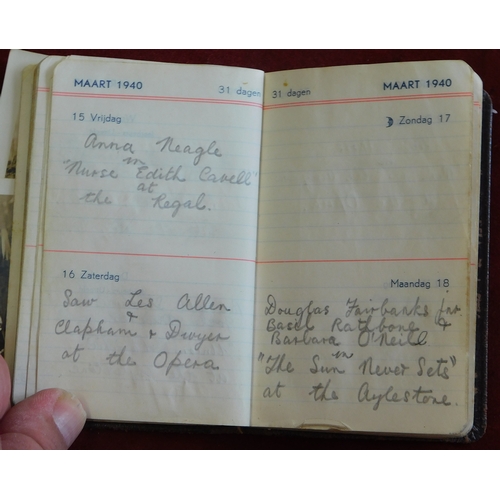 MAART 1940
31 dagen
15 Vrijdag
Anna Neagle
in
"Nurse Edith Cavell"
at
the Regal.
16 Zaterdag
Saw Les Allen
&
Clapham & Dwyer
at the Opera
31 dagen
MAART 1940
Zondag 17
Maandag 18
Douglas Fairbanks jnr
Basel Rathbone &
Barbara O'Neill
in
"The Sun Never Sets"
at the Aylestone.